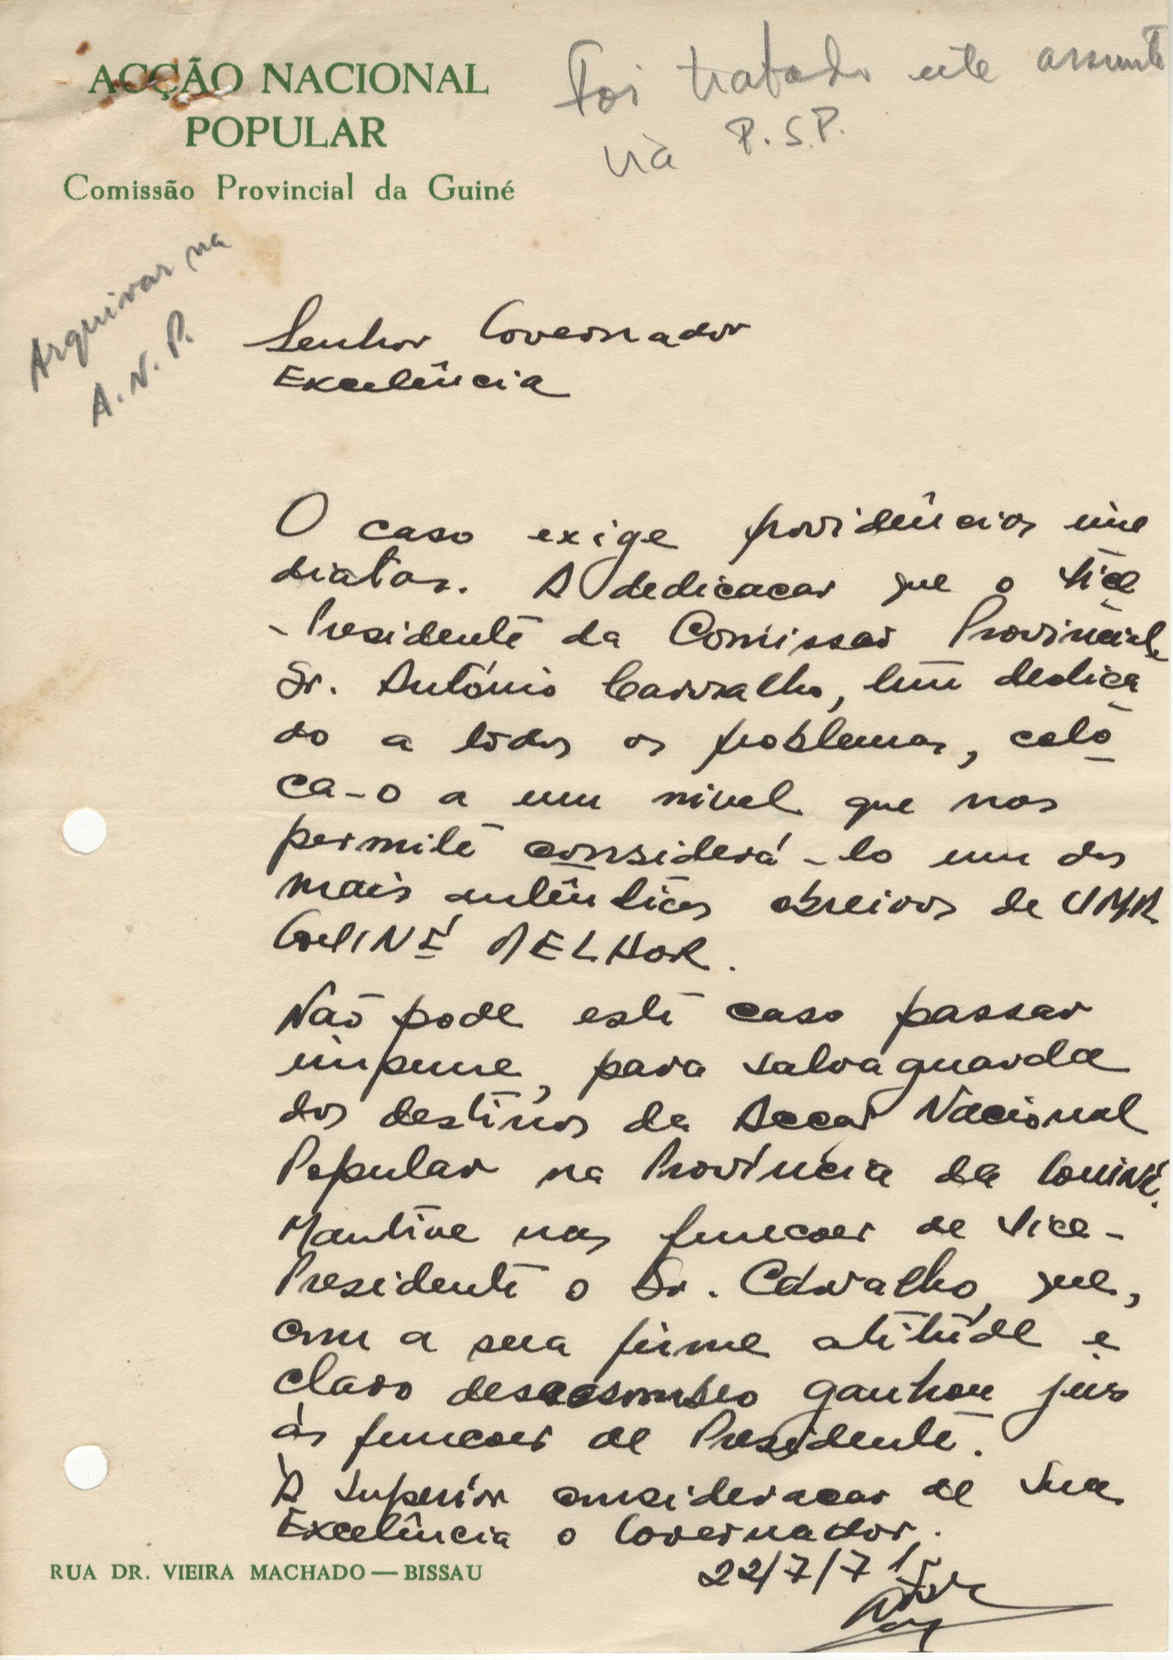 ACÇÃO NACIONAL
POPULAR
Comissão Provincial da Guiné
Foi tratado este assunto
via P.S.P.
Arquivar na
A.N.P.
Senhor Governador
Excelência
O caso exige providências ime
diatas. A dedicacao que o Vice
-Presidente da Comissao Provincial,
Sr. António Carvalho, tem dedica
do a todos os problemas, colo
ca-o a um nivel que nos
permite considerá-lo um dos
mais autênticos obreiros de UMA
GUINÉ MELHOR.
Não pode este caso passar
impune, para salvaguarda
dos destinos da Accao Nacional
Popular na Província da Guiné.
Mantive nas funcoes de Vice-
Presidente o Sr. Carvalho, que,
com a sua firme atitude e
claro desassombro ganhou jus
às funcoes de Presidente.
À Superior consideracao de Sua
Excelência o Governador.
22/7/71
RUA DR. VIEIRA MACHADO — BISSAU